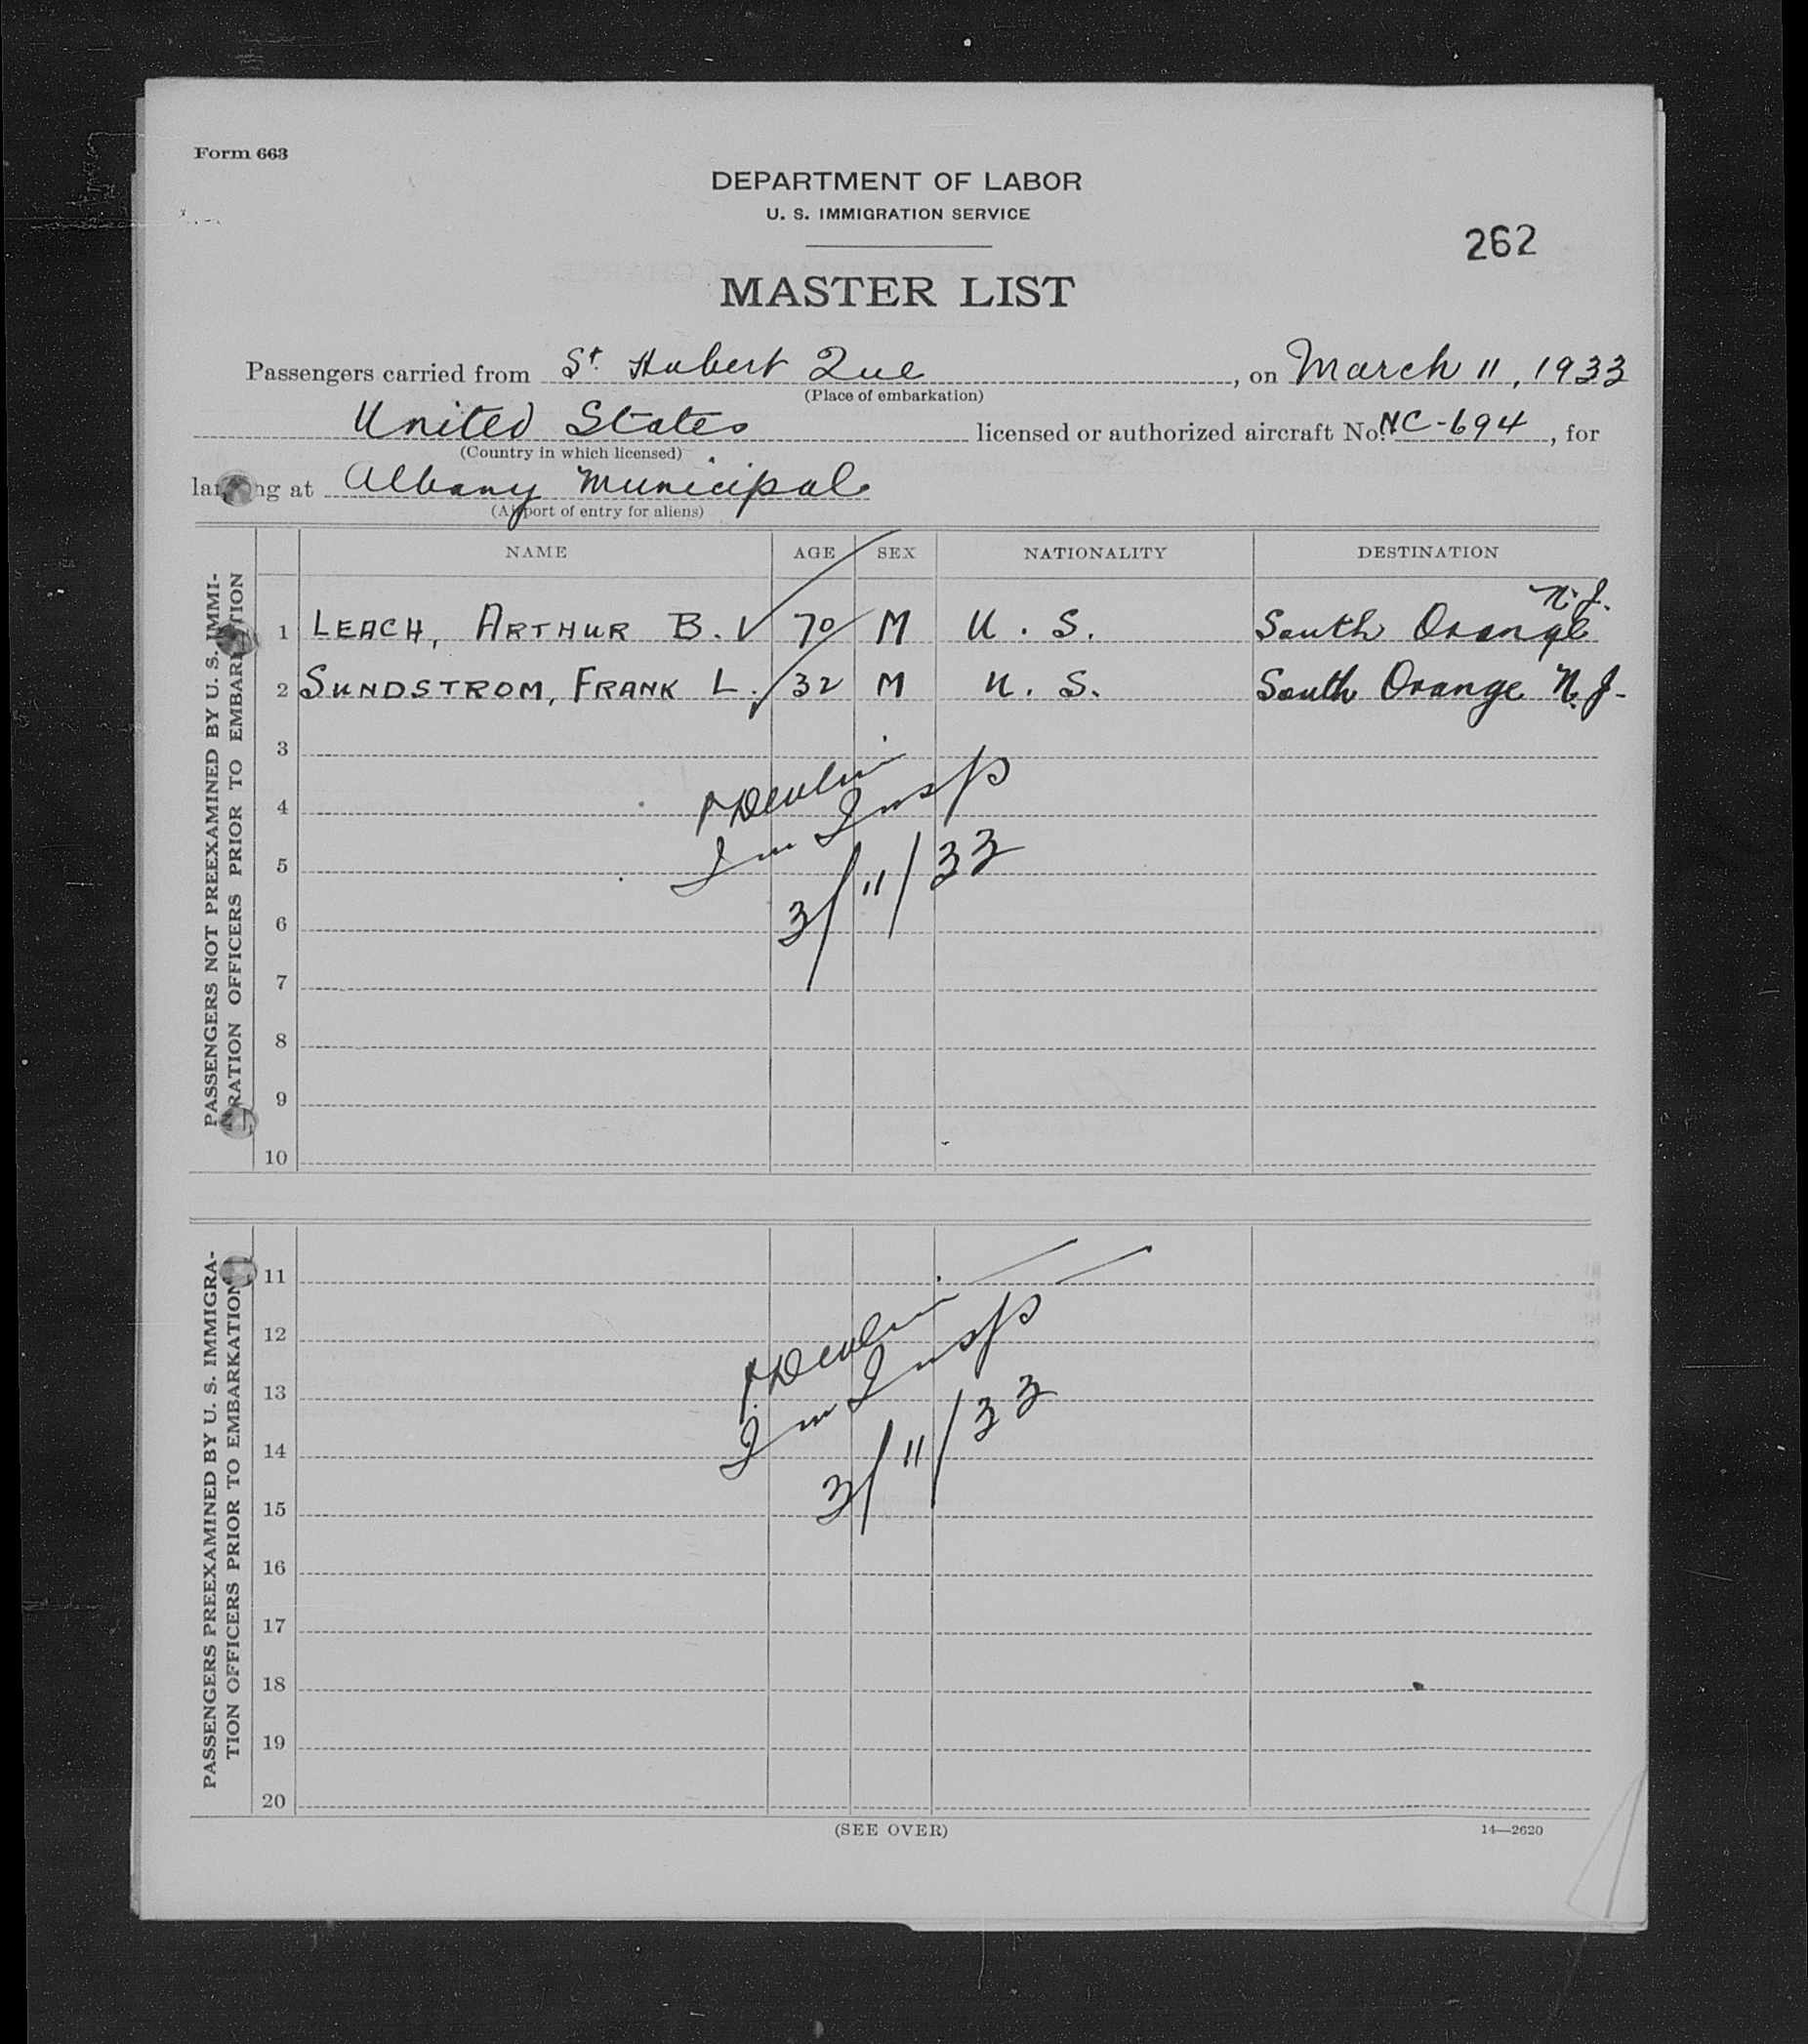 Form 663
DEPARTMENT OF LABOR
U. S. IMMIGRATION SERVICE
262
MASTER LIST
Passengers carried from St. Hubert Que, on March 11, 1933
(Place of embarkation)
United States licensed or authorized aircraft No. NC-694, for
(Country in which licensed)
landing at Albany Municipal
(Airport of entry for aliens)
PASSENGERS NOT PREEXAMINED BY U. S. IMMI-
GRATION OFFICERS PRIOR TO EMBARKATION
NAME AGE SEX NATIONALITY DESTINATION
1 LEACH, ARTHUR B. 70 M U. S. South Orange N. J.
2 SUNDSTROM, FRANK L. 32 M U. S. South Orange N. J.
3
4 Devlin
5 Im Insp
6 3/11/33
7
8
9
10
PASSENGERS PREEXAMINED BY U. S. IMMIGRA-
TION OFFICERS PRIOR TO EMBARKATION
11
12
13 Devlin
14 Im Insp
15 3/11/33
16
17
18
19
20
(SEE OVER)
14—2620